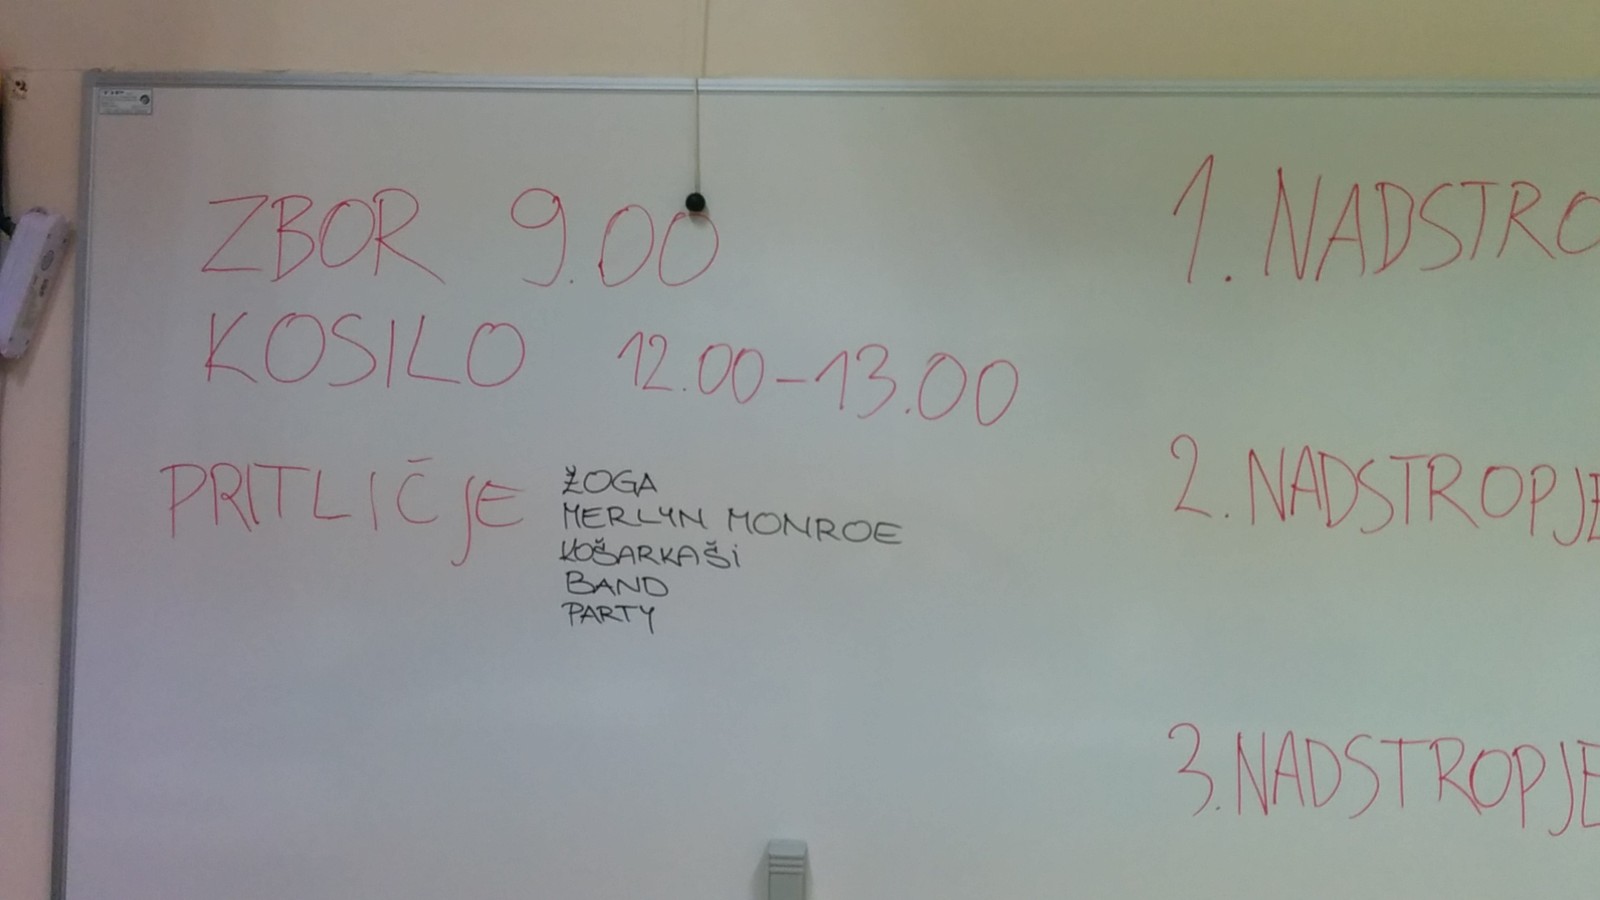 ZBOR 9.00
KOSILO 12.00-13.00
PRITLIČJE
ŽOGA
MERLYN MONROE
KOŠARKAŠI
BAND
PARTY
1. NADSTRO
2. NADSTROPJE
3. NADSTROPJE